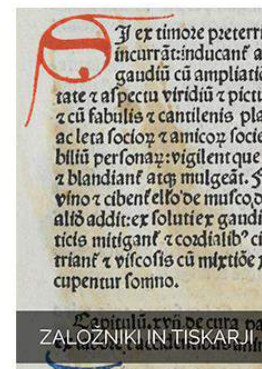 SI ex timore preterri
incurrãt:inducanẽ a
gaudiũ cũ ampliatio
tate ⁊ aspectu viridiũ ⁊ pictu
⁊ cũ fabulis ⁊ cantilenis pla
ac leta socioꝝ ⁊ amicoꝝ socie
biliũ personaꝝ:vigilent que
⁊ blandianẽ atqꝫ mulgeãt.
vino ⁊ cibenẽ de musco,
aliõ addit:ex soluti ex gaudi
ticis mitiganẽ ⁊ cordialibꝰ ci
trianẽ ⁊ viscosis cũ mixtiõe
cupentur somno.
Capitulũ.xvij de cura
ZALOŽNIKI IN TISKARJI